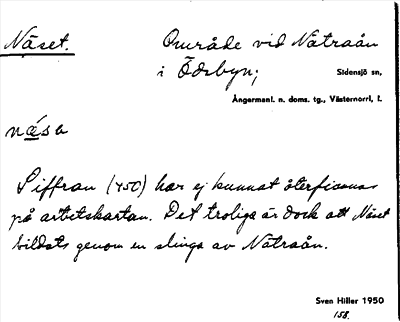 Näset.
Område vid Nätraån
i Ödsbyn;
Sidensjö sn,
Ångermanl. n. doms. tg., Västernorrl. l.
näsa
Siffran (450) har ej kunnat återfinnas
på arbetskartan. Det troliga är dock att Näset
bildats genom en slinga av Nätraån.
Sven Hiller 1950
158.